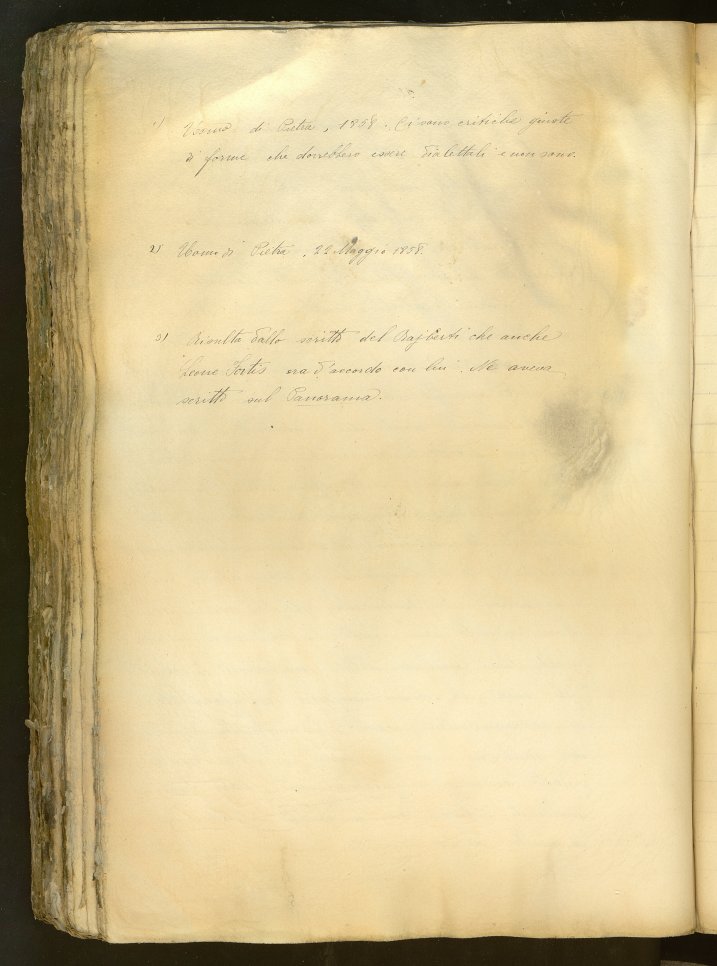 1) Uomo di Pietra, 1858. Ci sono critiche giuste
di forme che dovrebbero essere dialettali e non sono.
2) Uomo di Pietra, 22 Maggio 1858.
3) Risulta dallo scritto del Rajberti che anche
Leone Fortis era d'accordo con lui. Ne aveva
scritto sul Panorama.